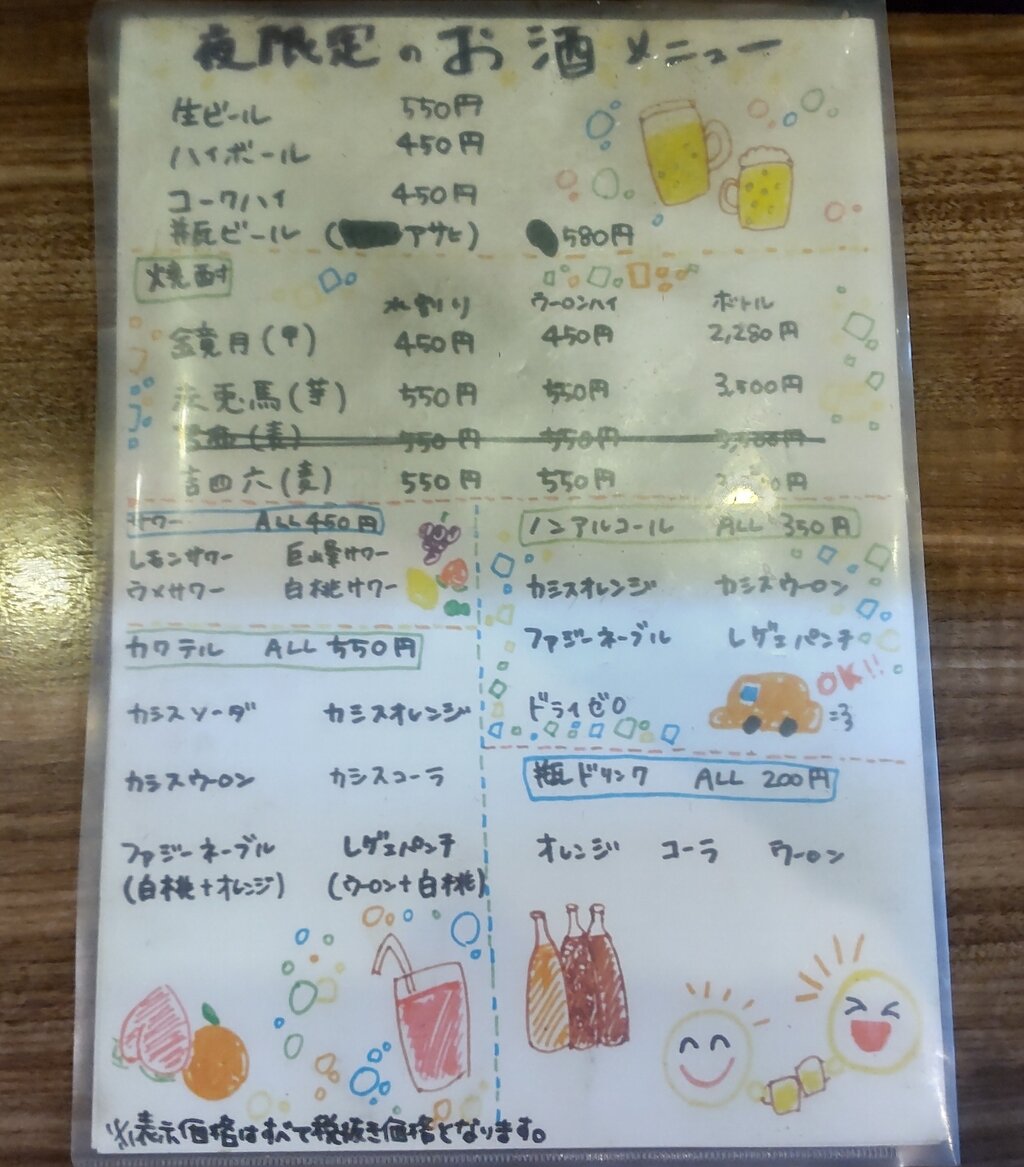 夜限定のお酒メニュー
生ビール 550円
ハイボール 450円
コークハイ 450円
瓶ビール (アサヒ) 580円
焼酎
水割り ウーロンハイ ボトル
鏡月(甲) 450円 450円 2,280円
兎馬(芋) 550円 550円 3,500円
(麦) 550円 550円 3,500円
吉四六(麦) 550円 550円
サワー ALL 450円
レモンサワー 巨峰サワー
ウメサワー 白桃サワー
カクテル ALL 550円
カシスソーダ カシスオレンジ
カシスウーロン カシスコーラ
ファジーネーブル レゲエパンチ
(白桃+オレンジ) (ウーロン+白桃)
ノンアルコール ALL 350円
カシスオレンジ カシスウーロン
ファジーネーブル レゲエパンチ
OK!!
ドライゼロ
瓶ドリンク ALL 200円
オレンジ コーラ ウーロン
※表示価格はすべて税抜き価格となります。